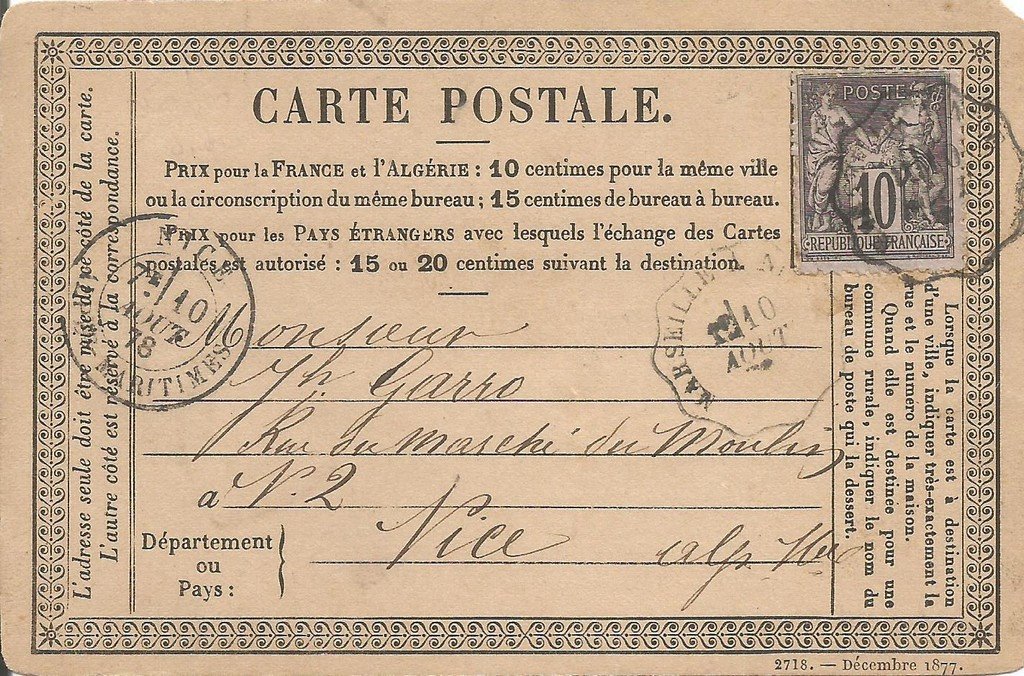 CARTE POSTALE.
POSTE
10
REPUBLIQUE FRANÇAISE
PRIX pour la FRANCE et l'ALGÉRIE : 10 centimes pour la même ville
ou la circonscription du même bureau ; 15 centimes de bureau à bureau.
PRIX pour les PAYS ÉTRANGERS avec lesquels l'échange des Cartes
postales est autorisé : 15 ou 20 centimes suivant la destination.
L'adresse seule doit être mise de ce côté de la carte.
L'autre côté est réservé à la correspondance.
NICE
7E 10
AOUT
78
MARITIMES
MARSEILLE
10
AOUT
Monsieur
Jh. Garro
Rue du Marché du Moulin
a N.º 2
Nice
Alp. Mes
Département
ou
Pays :
Lorsque la carte est à destination
d'une ville, indiquer très-exactement la
rue et le numéro de la maison.
Quand elle est destinée pour une
commune rurale, indiquer le nom du
bureau de poste qui la dessert.
2718. — Décembre 1877.